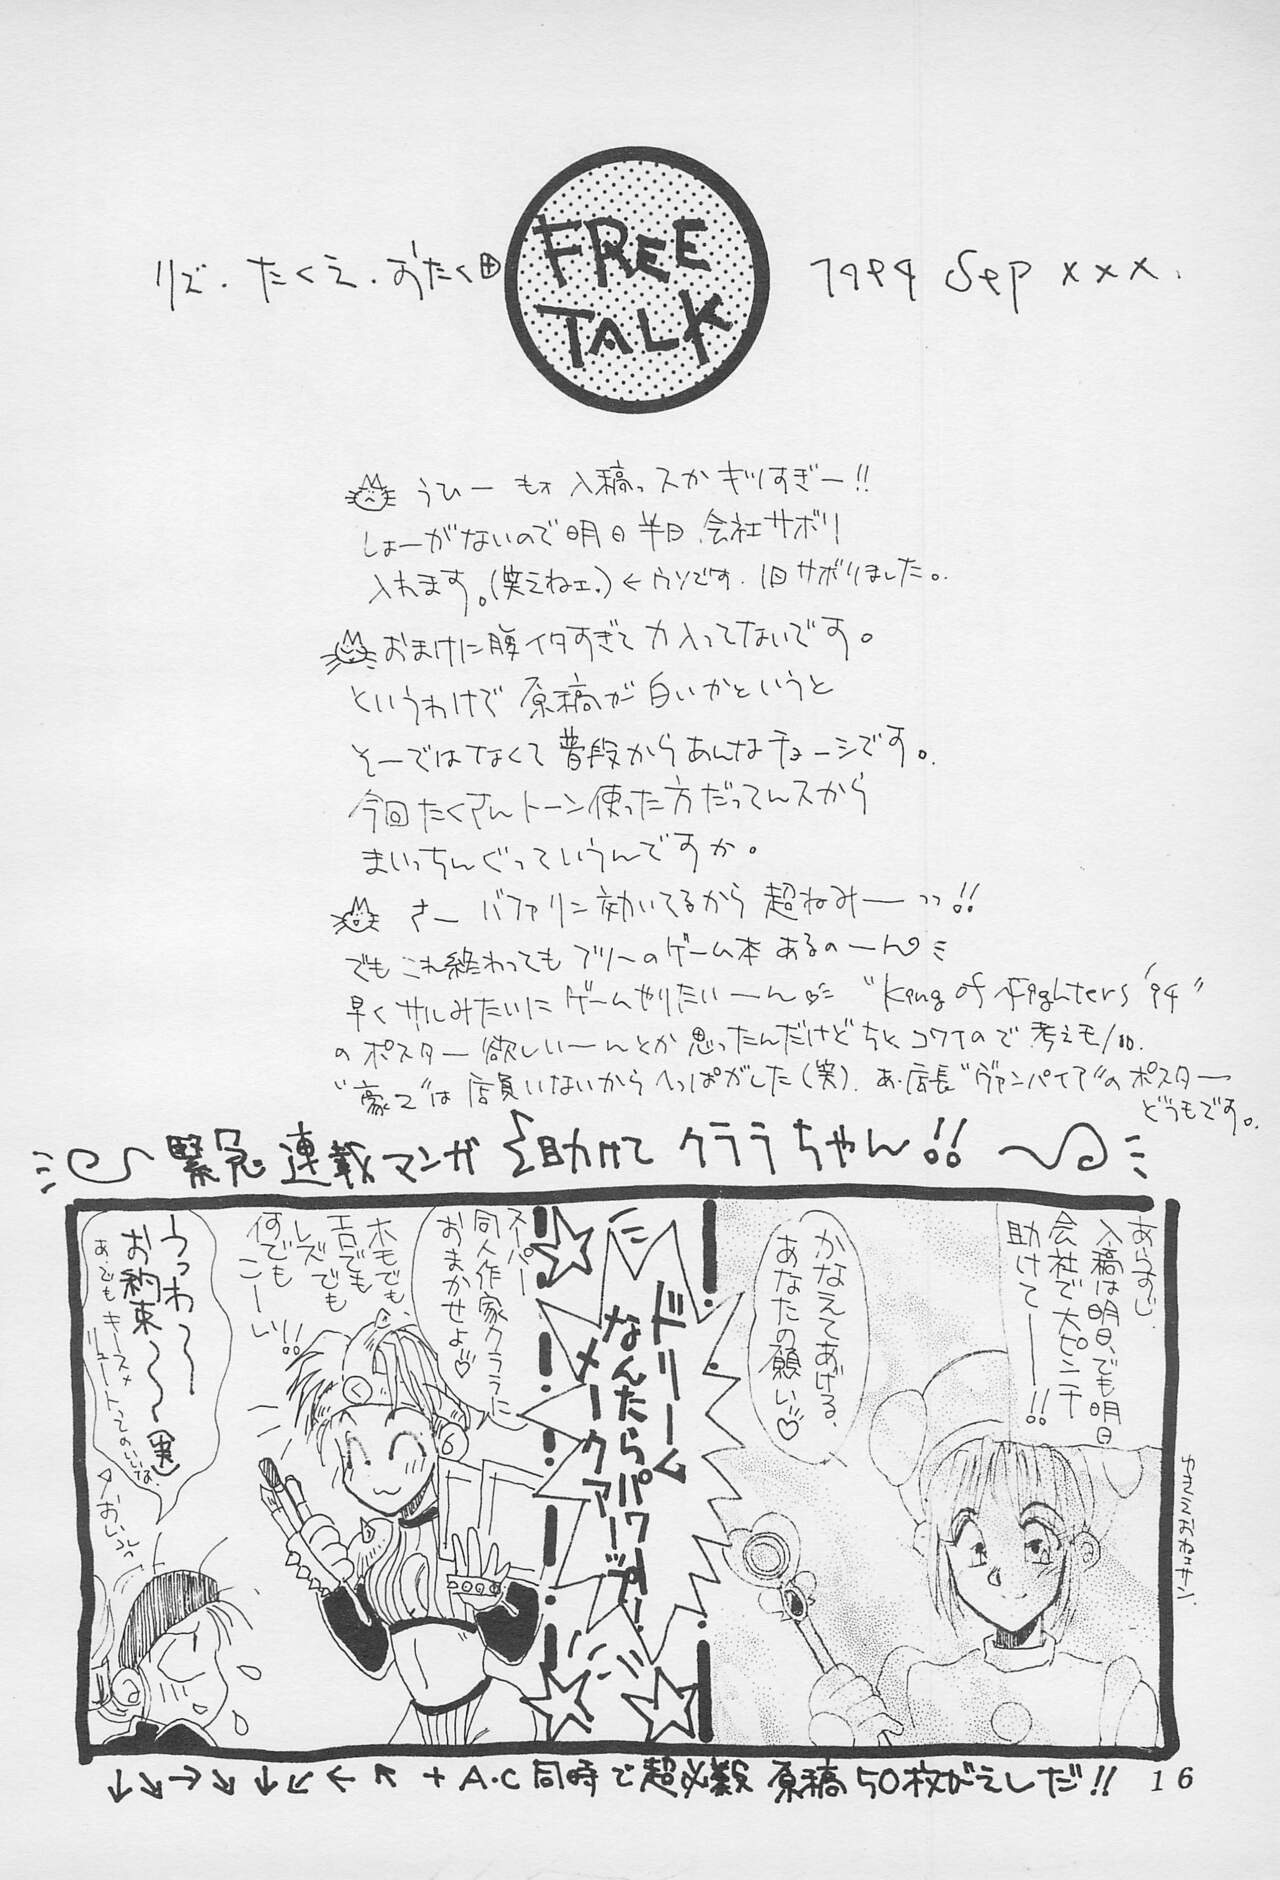 FREE
TALK
リズ・たくえ・おたく
1994 Sep xxx.
うひー もォ入稿っスか ギリすぎー!!
しょーがないので明日半日、会社サボり
入れます。(笑えねェ。)←ウソです。1日サボりました。
おまけに腹イタすぎて力入ってないです。
というわけで原稿が白いかというと
そーではなくて普段からあんなチョーシです。
今回たくさんトーン使った方だってんスから
まいっちんぐっていうんですか。
さー バファリン効いてるから超ねみーっっ!!
でもこれ終わってもフリーのゲーム本あるのーん
早くサルみたいにゲームやりたいーん "King of Fighters '94"
のポスター欲しいーんとか思ったんだけどちとコワイので考えモノ
は店員いないからへっぱがした(笑)。あ、店長"ヴァンパイア"のポスター
どうもです。
緊急連載マンガ 助けて クララちゃん!!
あらすじ
入稿は明日、でも明日
会社で大ピンチ
助けてーー!!
かなえてあげる、
あなたの願い♡
ドリーム
なんたらパワー!
メークアーップ!
スーパー
同人作家クララに
おまかせよ♡
ホモでも、
エロでも
レズでも
何でも
こーい!!
うっわ〜〜
お約束〜〜(笑)
↓↘→↘↓↙←↖+A・C同時で超必殺 原稿50枚がえしだ!!
16